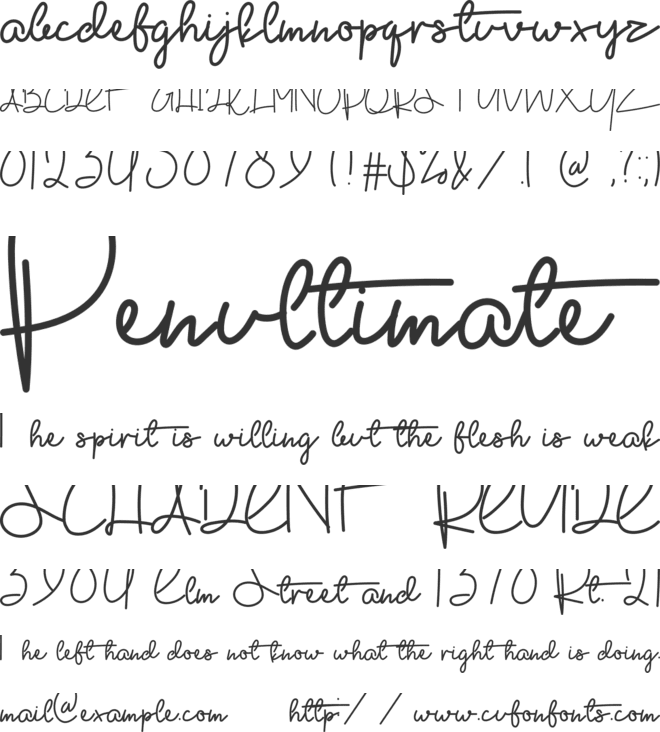 abcdefghijklmnopqrstuvwxyz
ABCDEF GHIJKLMNOPQRS TUVWXYZ
0123456789 (!#$%&/.| @,?:;)
Penultimate
The spirit is willing but the flesh is weak
SCHADENF REUDE
3904 Elm Street and 1370 Rt. 21
The left hand does not know what the right hand is doing.
mail@example.com http:// www.cufonfonts.com